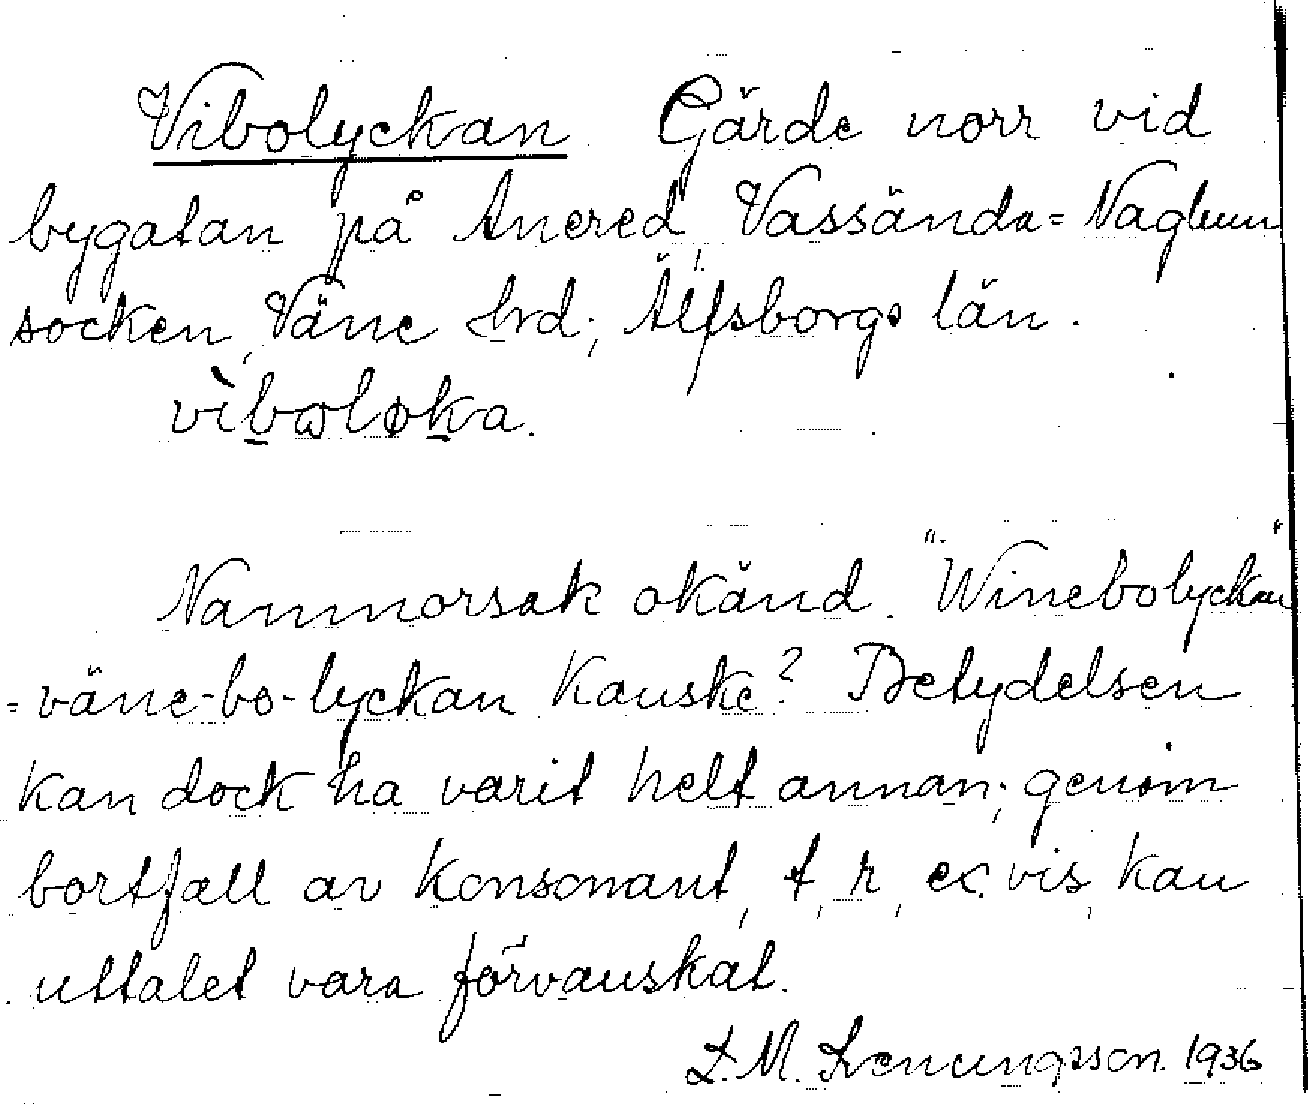 Vibolyckan Gärde norr vid
bygatan på Ancred, Vassända=Naglum
socken, Väne hrd; Älfsborgs län.
vìbωløka.
Namnorsak okänd. "Winebolyckan"
= väne-bo-lyckan kanske? Betydelsen
kan dock ha varit helt annan; genom
bortfall av konsonant, t, r, ex. vis, kan
uttalet vara förvanskat.
L. M. Svenungsson. 1936